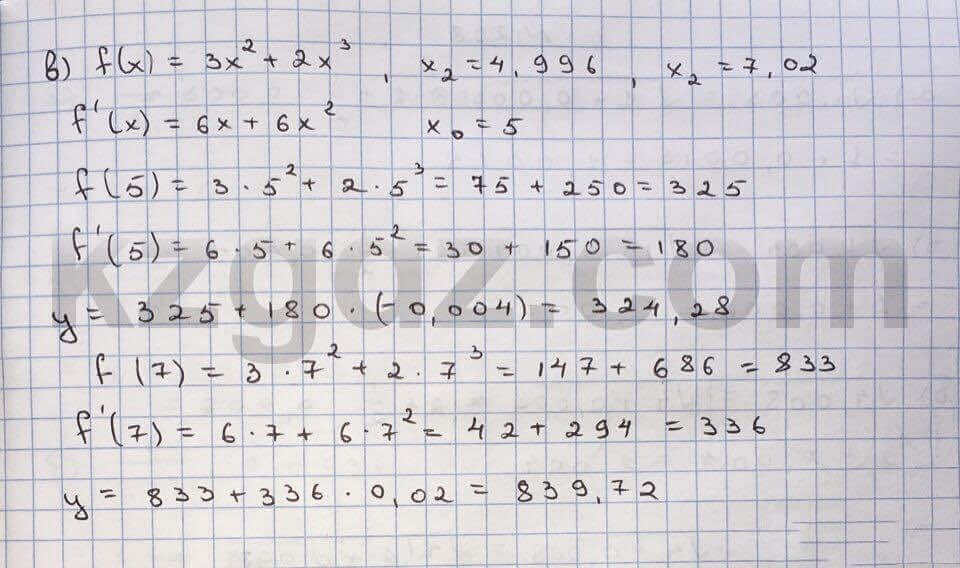 в) f(x) = 3x² + 2x³ , x₂ = 4,996 , x₂ = 7,02
f'(x) = 6x + 6x² x₀ = 5
f(5) = 3 · 5² + 2 · 5³ = 75 + 250 = 325
f'(5) = 6 · 5 + 6 · 5² = 30 + 150 = 180
kzgdz.com
y = 325 + 180 · (-0,004) = 324,28
f(7) = 3 · 7² + 2 · 7³ = 147 + 686 = 833
f'(7) = 6 · 7 + 6 · 7² = 42 + 294 = 336
y = 833 + 336 · 0,02 = 839,72